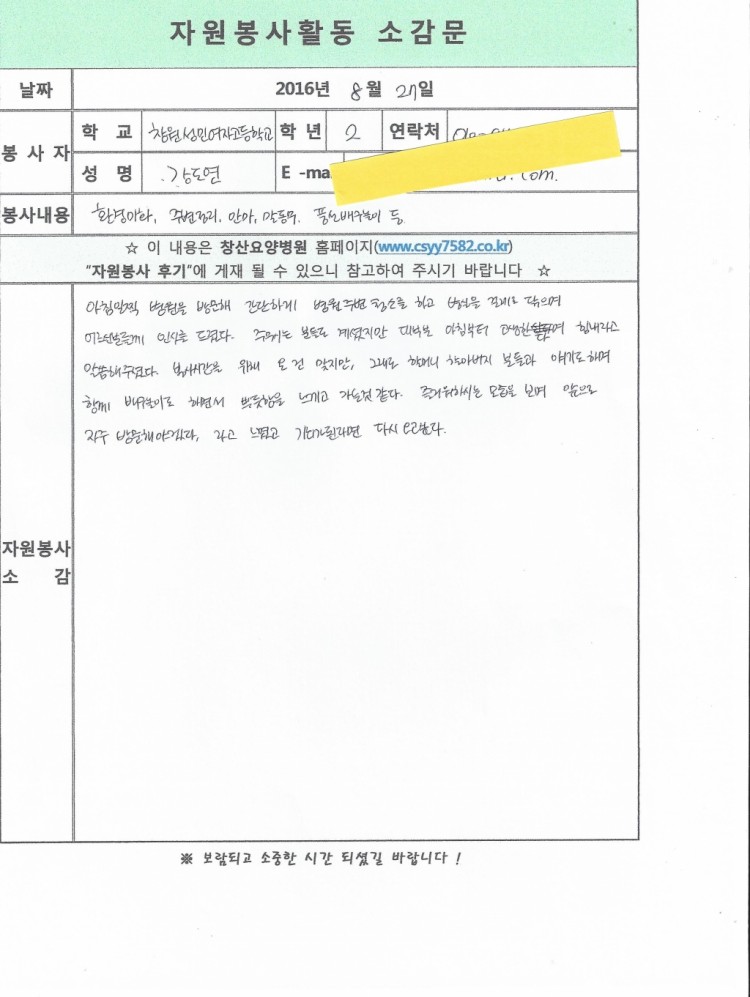 자원봉사활동 소감문
날짜 2016년 8월 27일
봉사자 학 교 창원성민여자고등학교 학 년 2 연락처
성 명 강도연 E -ma .com.
봉사내용 환경미화, 주변정리, 안마, 말동무, 풍선배구놀이 등
☆ 이 내용은 창산요양병원 홈페이지(www.csyy7582.co.kr)
"자원봉사 후기"에 게재 될 수 있으니 참고하여 주시기 바랍니다 ☆
아침일찍 병원을 방문해 간단하게 병원주변 청소를 하고 병실을 걸레로 닦으며
어르신분들께 인사를 드렸다. 주무시는 분들도 계셨지만 대부분 아침부터 고생한다며 힘내라고
말씀해주셨다. 봉사시간을 위해 온 건 맞지만, 그래도 할머니 할아버지 분들과 얘기도하며
함께 배구놀이도 하면서 뿌듯함을 느끼고 가는것 같다. 즐거워하시는 모습을 보며 앞으로
자주 방문해야겠다, 라고 느꼈고 기회가된다면 다시
자원봉사
소 감
※ 보람되고 소중한 시간 되셨길 바랍니다 !